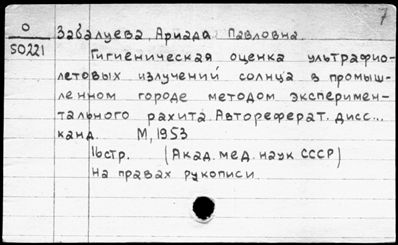 7
О
50221
Забалуева, Ариада Павловна.
Гигиеническая оценка ультрафио-
летовых излучений солнца в промыш-
ленном городе методом эксперимен-
тального рахита. Автореферат. дисс...
канд. М, 1953
16стр. (Акад. мед. наук СССР)
На правах рукописи.